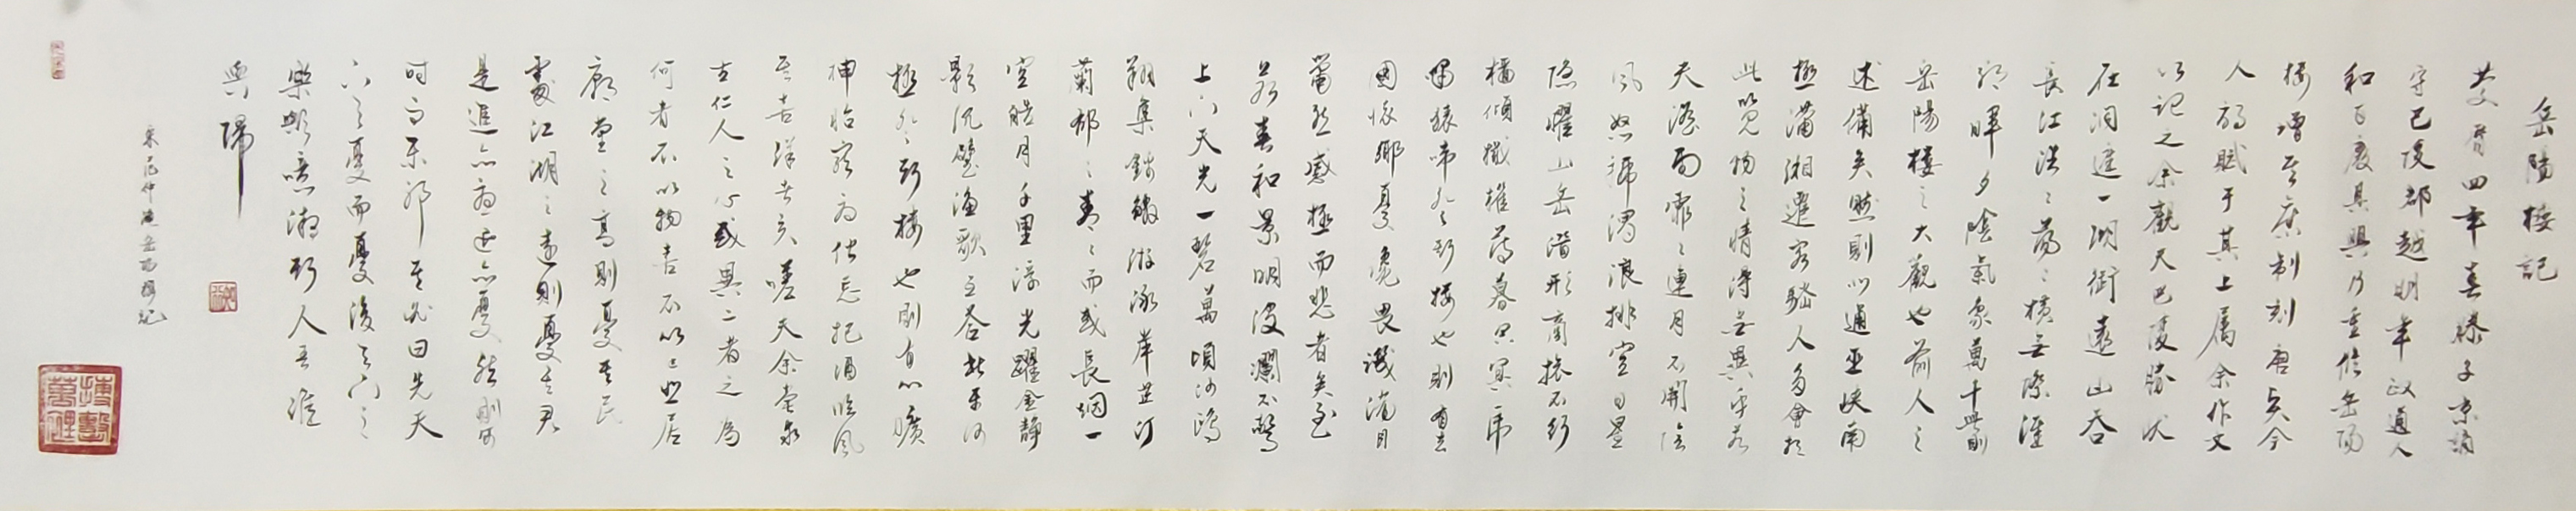 岳陽樓記
慶曆四年春滕子京謫
守巴陵郡越明年政通人
和百廢具興乃重修岳陽
樓增其舊制刻唐賢今
人詩賦于其上屬余作文
以記之余觀夫巴陵勝狀
在洞庭一湖銜遠山吞
長江浩〻蕩〻橫無際涯
朝暉夕陰氣象萬千此則
岳陽樓之大觀也前人之
述備矣然則北通巫峽南
極瀟湘遷客騷人多會於
此覽物之情得無異乎若
夫淫雨霏〻連月不開陰
風怒號濁浪排空日星
隱曜山岳潛形商旅不行
檣傾楫摧薄暮冥冥虎
嘯猿啼登斯樓也則有去
國懷鄉憂讒畏譏滿目
蕭然感極而悲者矣至
若春和景明波瀾不驚
上下天光一碧萬頃沙鷗
翔集錦鱗游泳岸芷汀
蘭郁〻青〻而或長烟一
空皓月千里浮光躍金靜
影沉璧漁歌互答此樂何
極登斯樓也則有心曠
神怡寵辱偕忘把酒臨風
其喜洋者矣嗟夫余嘗求
古仁人之心或異二者之為
何者不以物喜不以己悲居
廟堂之高則憂其民
處江湖之遠則憂其君
是進亦憂退亦憂然則何
時而樂耶其必曰先天
下之憂而憂後天下之
樂歟噫微斯人吾誰
與歸
宋范仲淹岳陽樓記